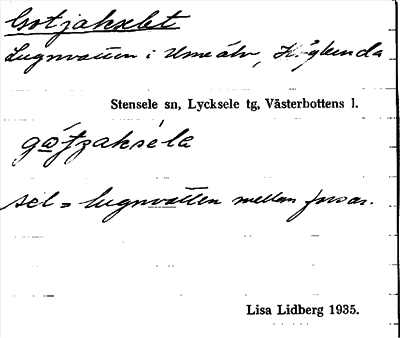 Gotjakselet
Lugnvatten i Umeälv, Kåskeluda
Stensele sn, Lycksele tg, Västerbottens l.
gå̀tjzaksé̀la
sel = lugnvatten mellan forsar.
Lisa Lidberg 1935.